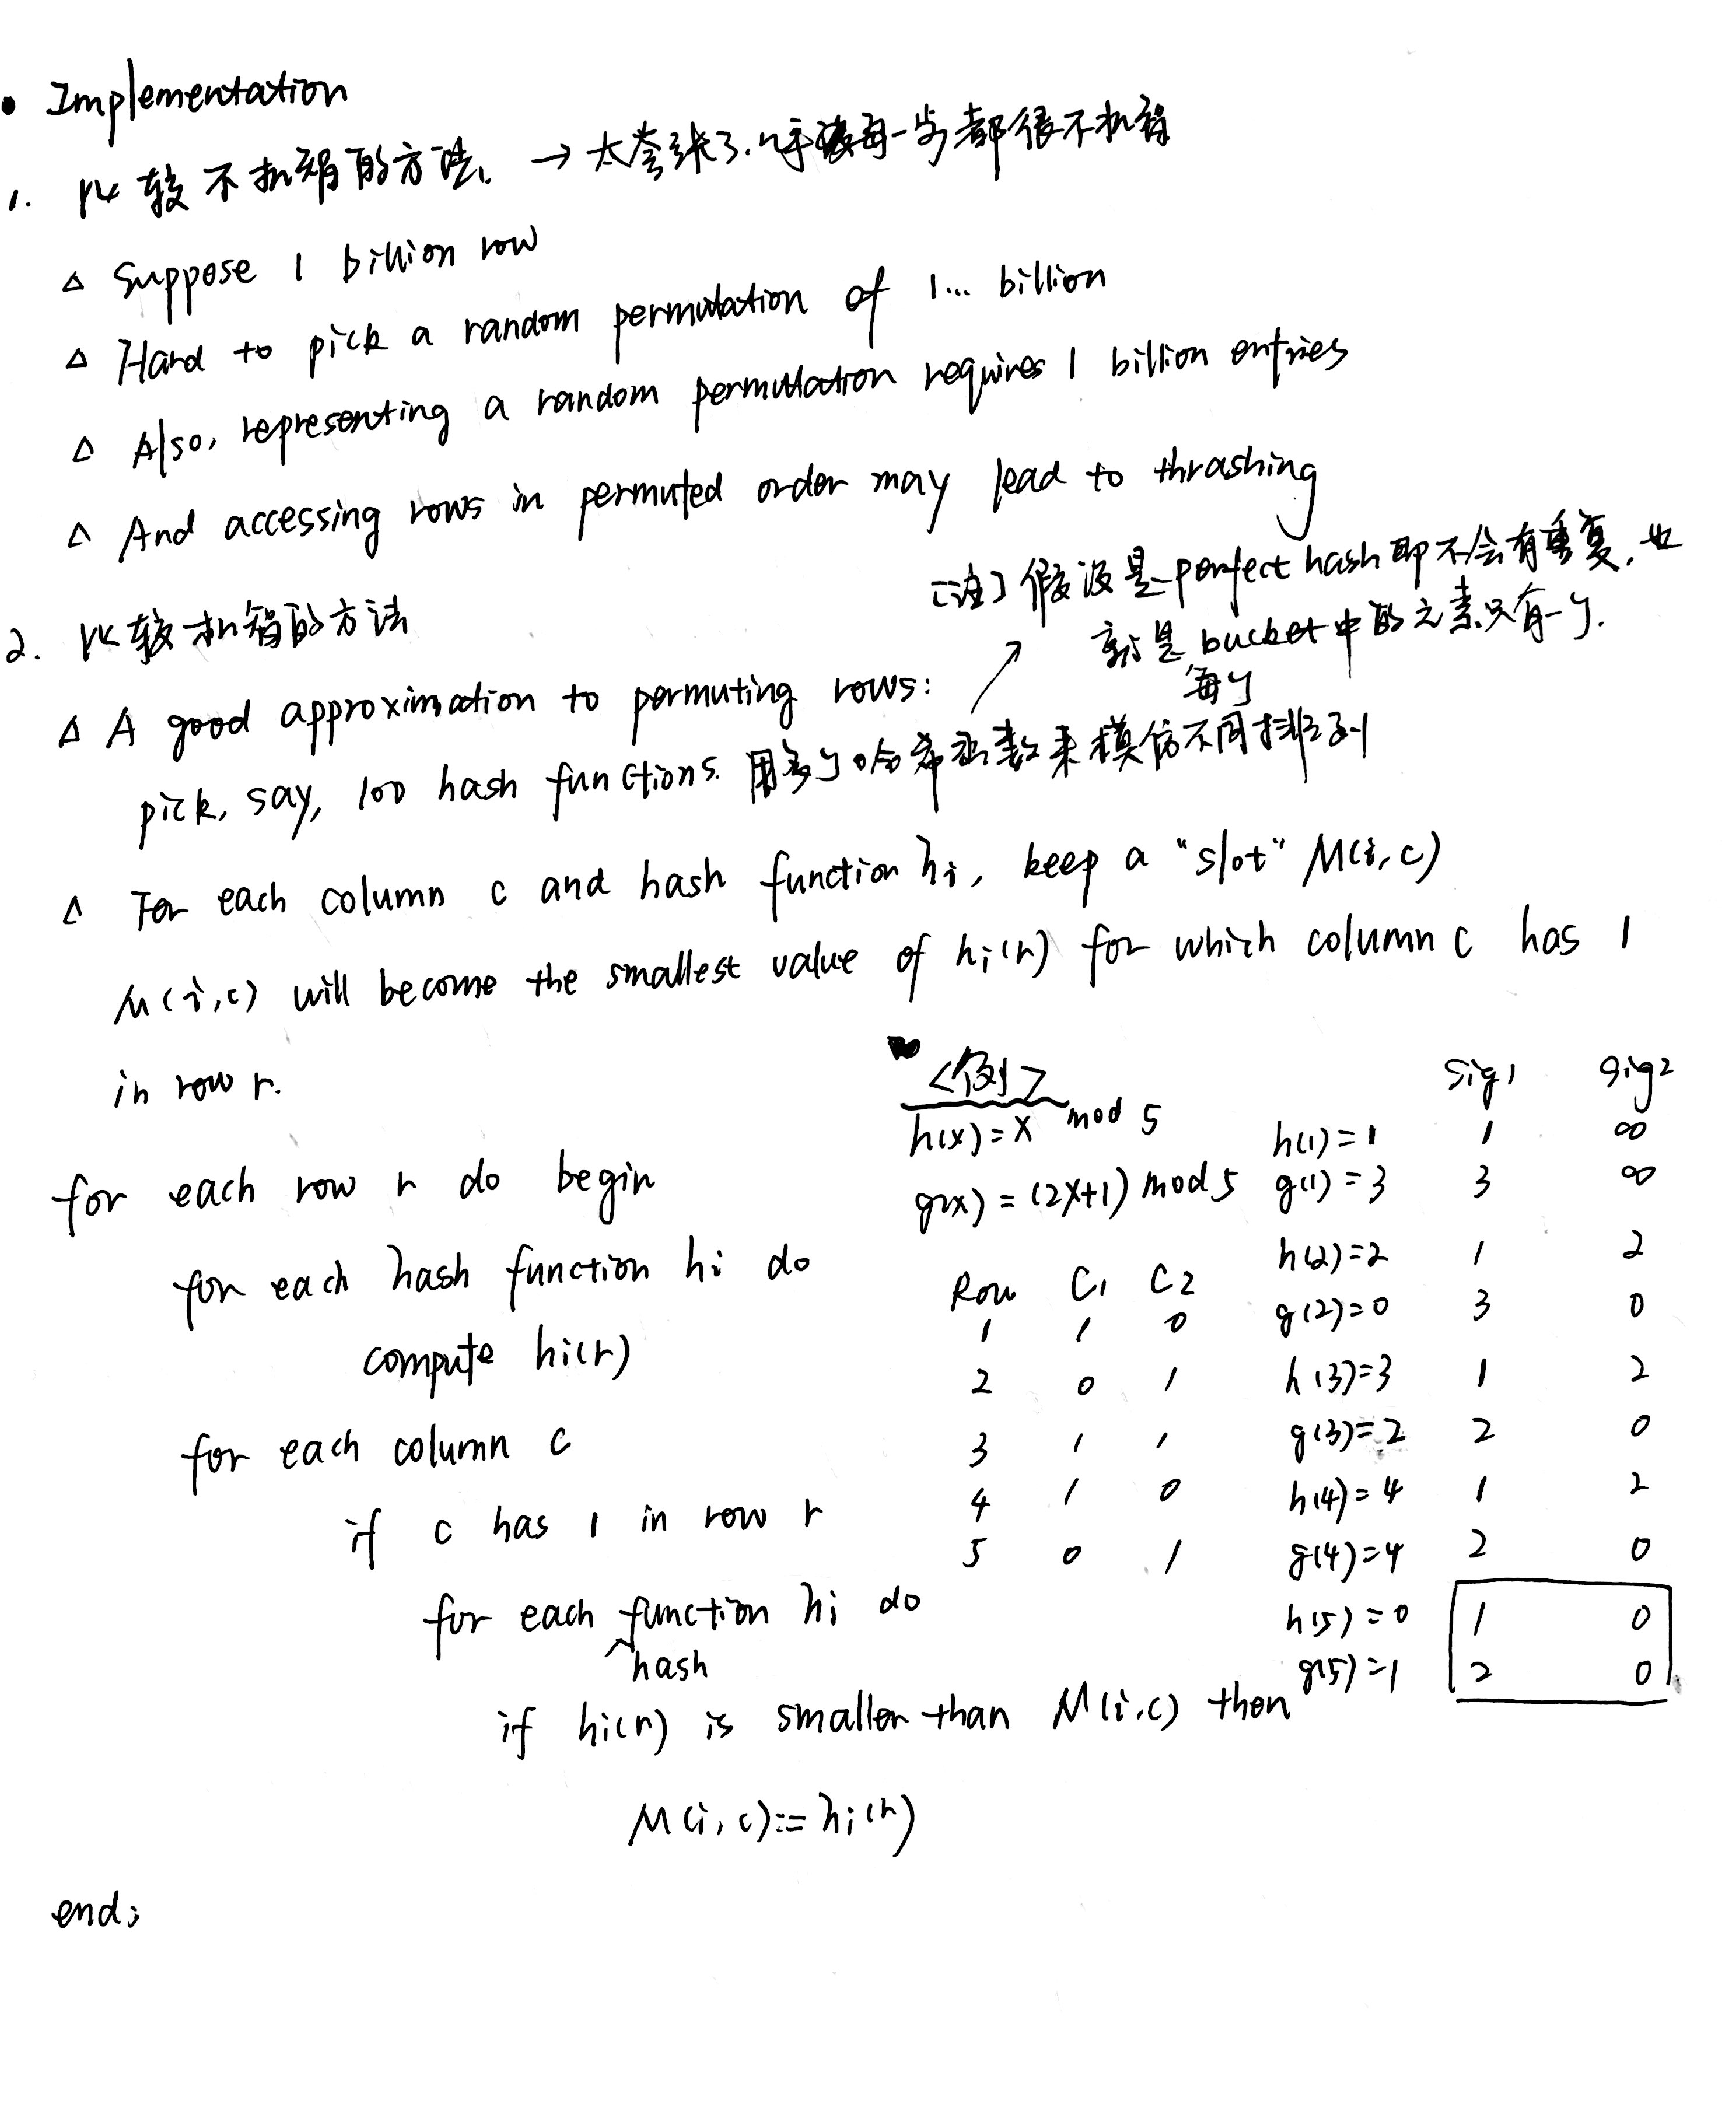 • Implementation
1. 比较不机智的方法. → 太夸张了.呼哧每一步都很不机智
△ Suppose 1 billion row
△ Hard to pick a random permutation of 1... billion
△ Also, representing a random permutation requires 1 billion entries
△ And accessing rows in permuted order may lead to thrashing
[注] 假设是 perfect hash 即不会有重复, 也
就是 bucket 中的元素只有一个.
每个
2. 比较机智的方法
△ A good approximation to permuting rows:
pick, say, 100 hash functions. 用多个哈希函数来模仿不同排列
△ For each column c and hash function hi, keep a "slot" M(i, c)
M(i, c) will become the smallest value of hi(r) for which column c has 1
in row r.
for each row r do begin
for each hash function hi do
compute hi(r)
for each column c
if c has 1 in row r
for each function hi do
hash
if hi(r) is smaller than M(i, c) then
M(i, c) := hi(r)
end;
<例>
h(x) = x mod 5
g(x) = (2x+1) mod 5
Row C1 C2
1 1 0
2 0 1
3 1 1
4 1 0
5 0 1
Sig1 Sig2
h(1)=1 1 ∞
g(1)=3 3 ∞
h(2)=2 1 2
g(2)=0 3 0
h(3)=3 1 2
g(3)=2 2 0
h(4)=4 1 2
g(4)=4 2 0
h(5)=0 1 0
g(5)=1 2 0